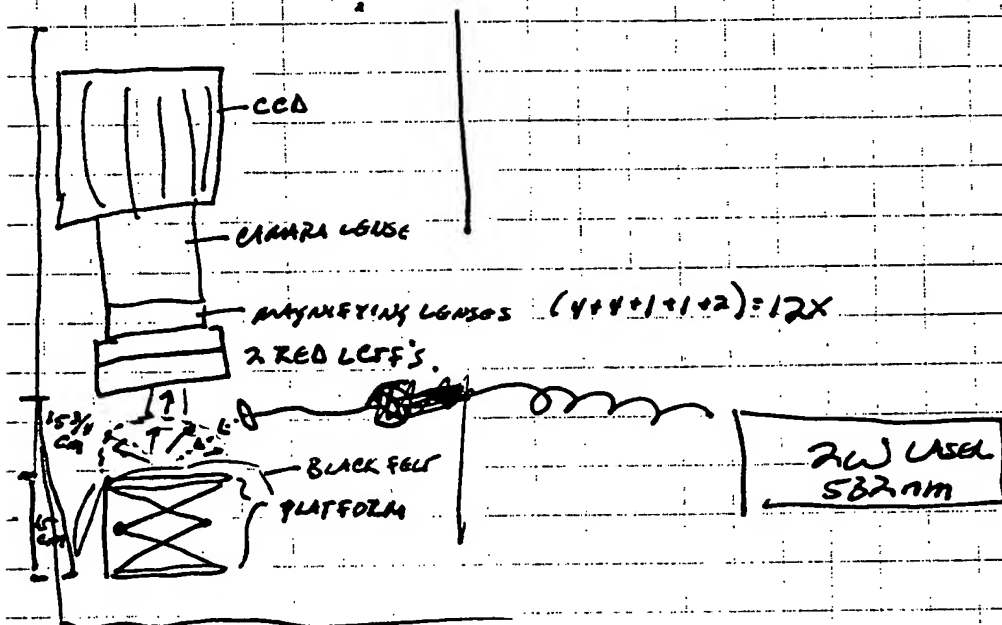 CCD
CAMARA LENSE
MAGNIFYING LENSES (4+4+1+1+2)=12X
2 RED LCTF's.
15 3/4
cm
BLACK FELT
PLATFORM
15
cm
2W LASER
532nm